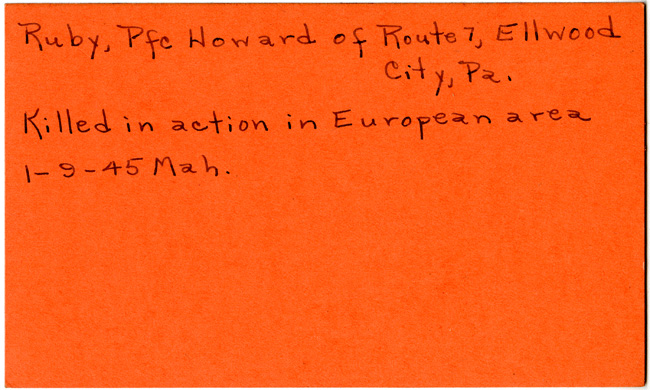 Ruby, Pfc Howard of Route 7, Ellwood
City, Pa.
Killed in action in European area
1-9-45 Mah.